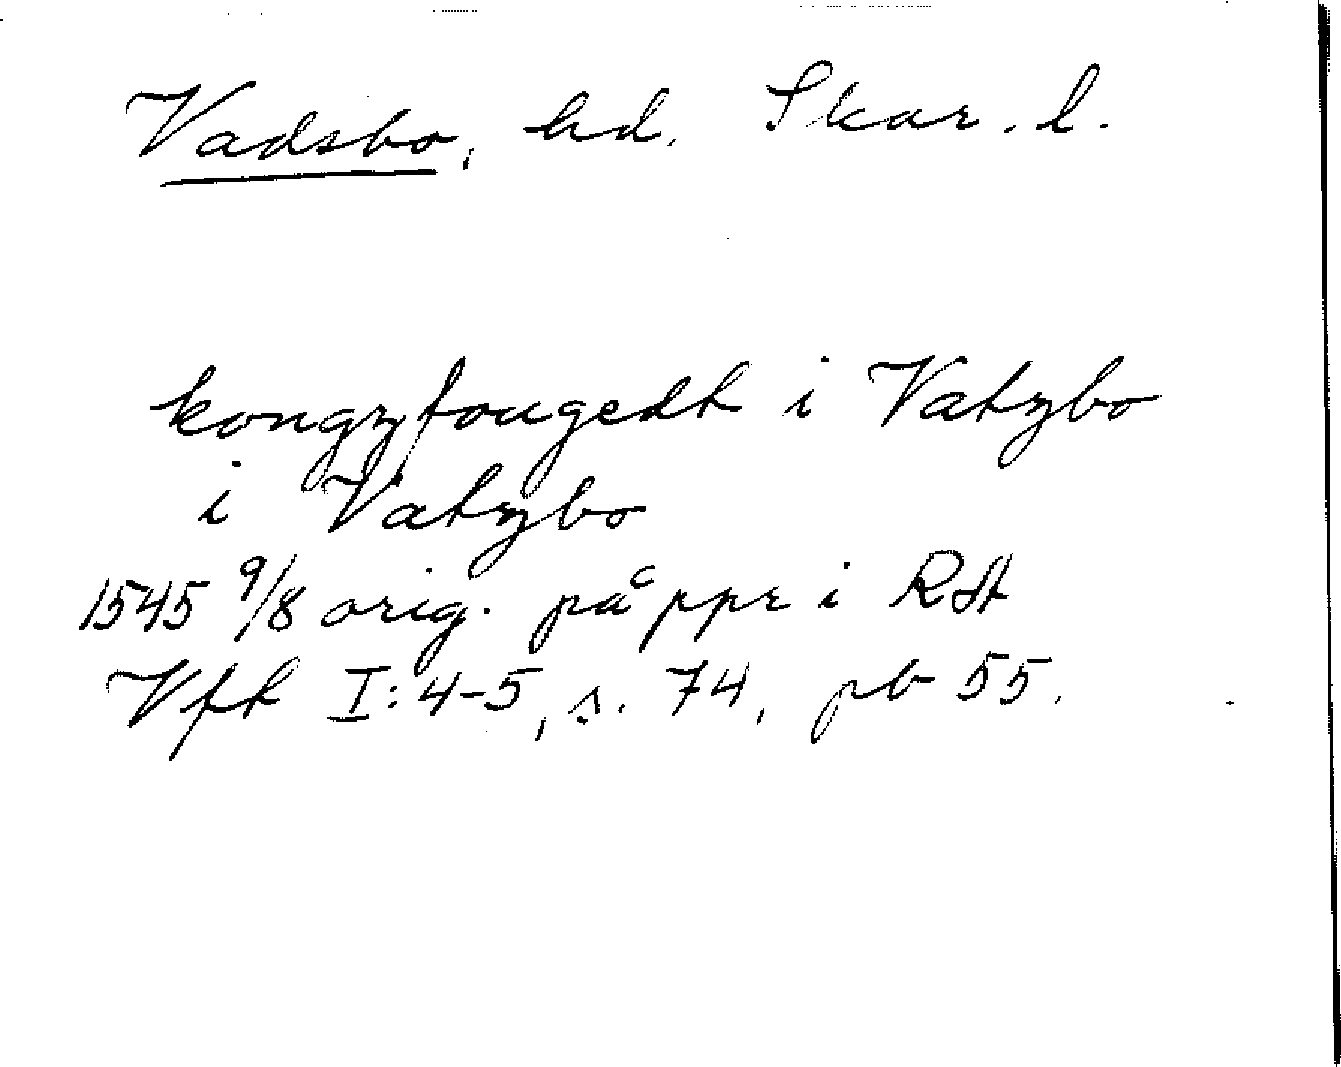 Vadsbo, hd. Skar. l.
kongz fougedt i Vatzbo
i Vatzbo
1545 9/8 orig. på ppr i RA
Vft I: 4-5, s. 74, pb 55.